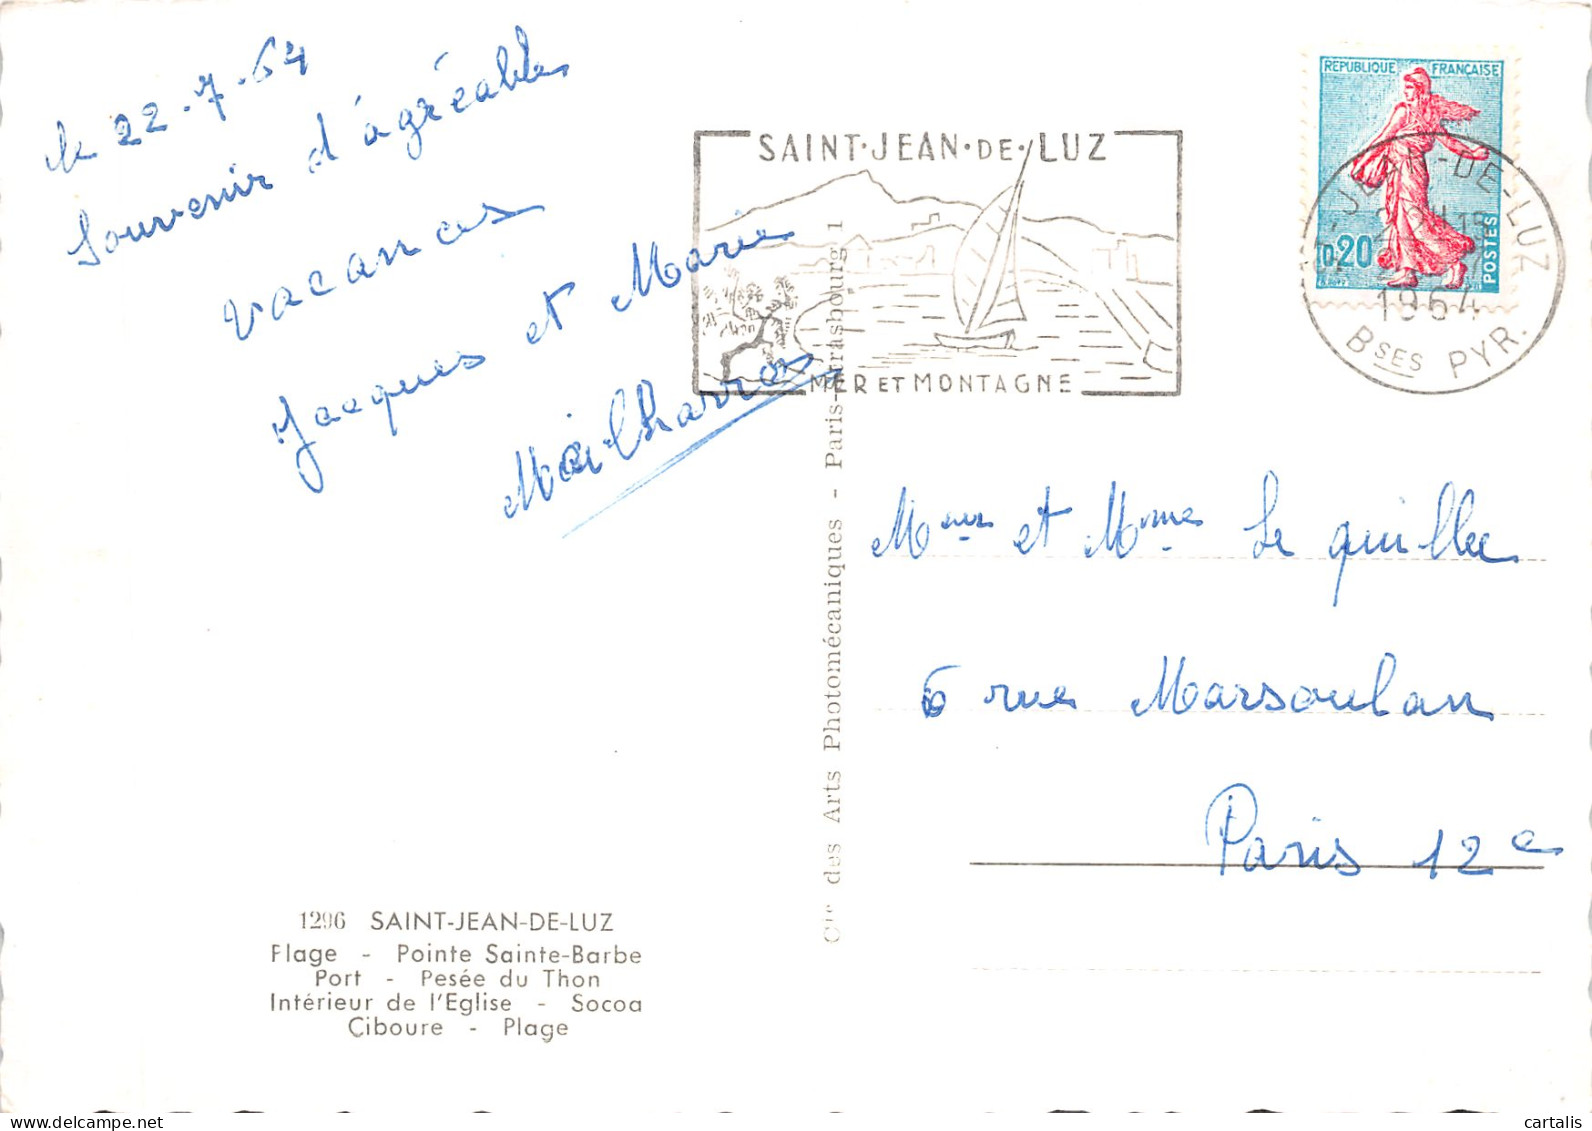 le 22.7.64
Souvenir d'agréables
vacances
Jacques et Marie
SAINT·JEAN·DE·LUZ
MER ET MONTAGNE
REPUBLIQUE FRANÇAISE
0,20
POSTES
ST-JEAN-DE-LUZ
1964
BSES PYR.
Meur et Mme Le quillec
6 rue Marsoulan
Paris 12e
Cie des Arts Photomécaniques - Paris-Strasbourg 1
1296 SAINT-JEAN-DE-LUZ
Plage - Pointe Sainte-Barbe
Port - Pesée du Thon
Intérieur de l'Eglise - Socoa
Ciboure - Plage
cartalis